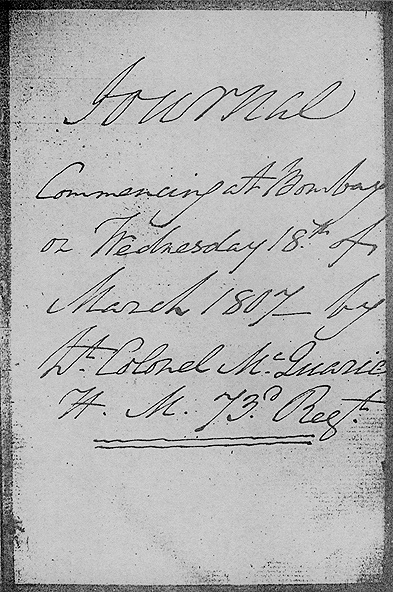 Journal
Commencing at Bombay
on Wednesday 18.th of
March 1807 – by
Lt. Colonel Mc.Quarie
H. M. 73.d Regt.